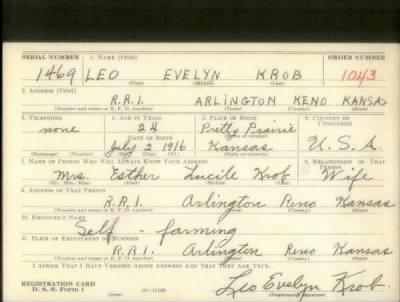 SERIAL NUMBER 1. NAME (Print) ORDER NUMBER
1469 LEO EVELYN KROB 1043
(First) (Middle) (Last)
2. ADDRESS (Print)
R.R.1. ARLINGTON RENO KANSAS
(Number and street or R. F. D. number) (Town) (County) (State)
3. TELEPHONE 4. AGE IN YEARS 5. PLACE OF BIRTH 6. COUNTRY OF CITIZENSHIP
none 24 Pretty Prairie
DATE OF BIRTH (Town or county)
July 2 1916 Kansas U.S.A.
(Mo.) (Day) (Yr.) (State or country)
7. NAME OF PERSON WHO WILL ALWAYS KNOW YOUR ADDRESS 8. RELATIONSHIP OF THAT PERSON
Mrs. Esther Lucile Krob Wife
(Mr., Mrs., Miss) (First) (Middle) (Last)
9. ADDRESS OF THAT PERSON
R.R.1. Arlington Reno Kansas
(Number and street or R. F. D. number) (Town) (County) (State)
10. EMPLOYER'S NAME
Self - farming
11. PLACE OF EMPLOYMENT OR BUSINESS
R.R.1. Arlington Reno Kansas
(Number and street or R. F. D. number) (Town) (County) (State)
I AFFIRM THAT I HAVE VERIFIED ABOVE ANSWERS AND THAT THEY ARE TRUE.
REGISTRATION CARD
D. S. S. Form 1 Leo Evelyn Krob.